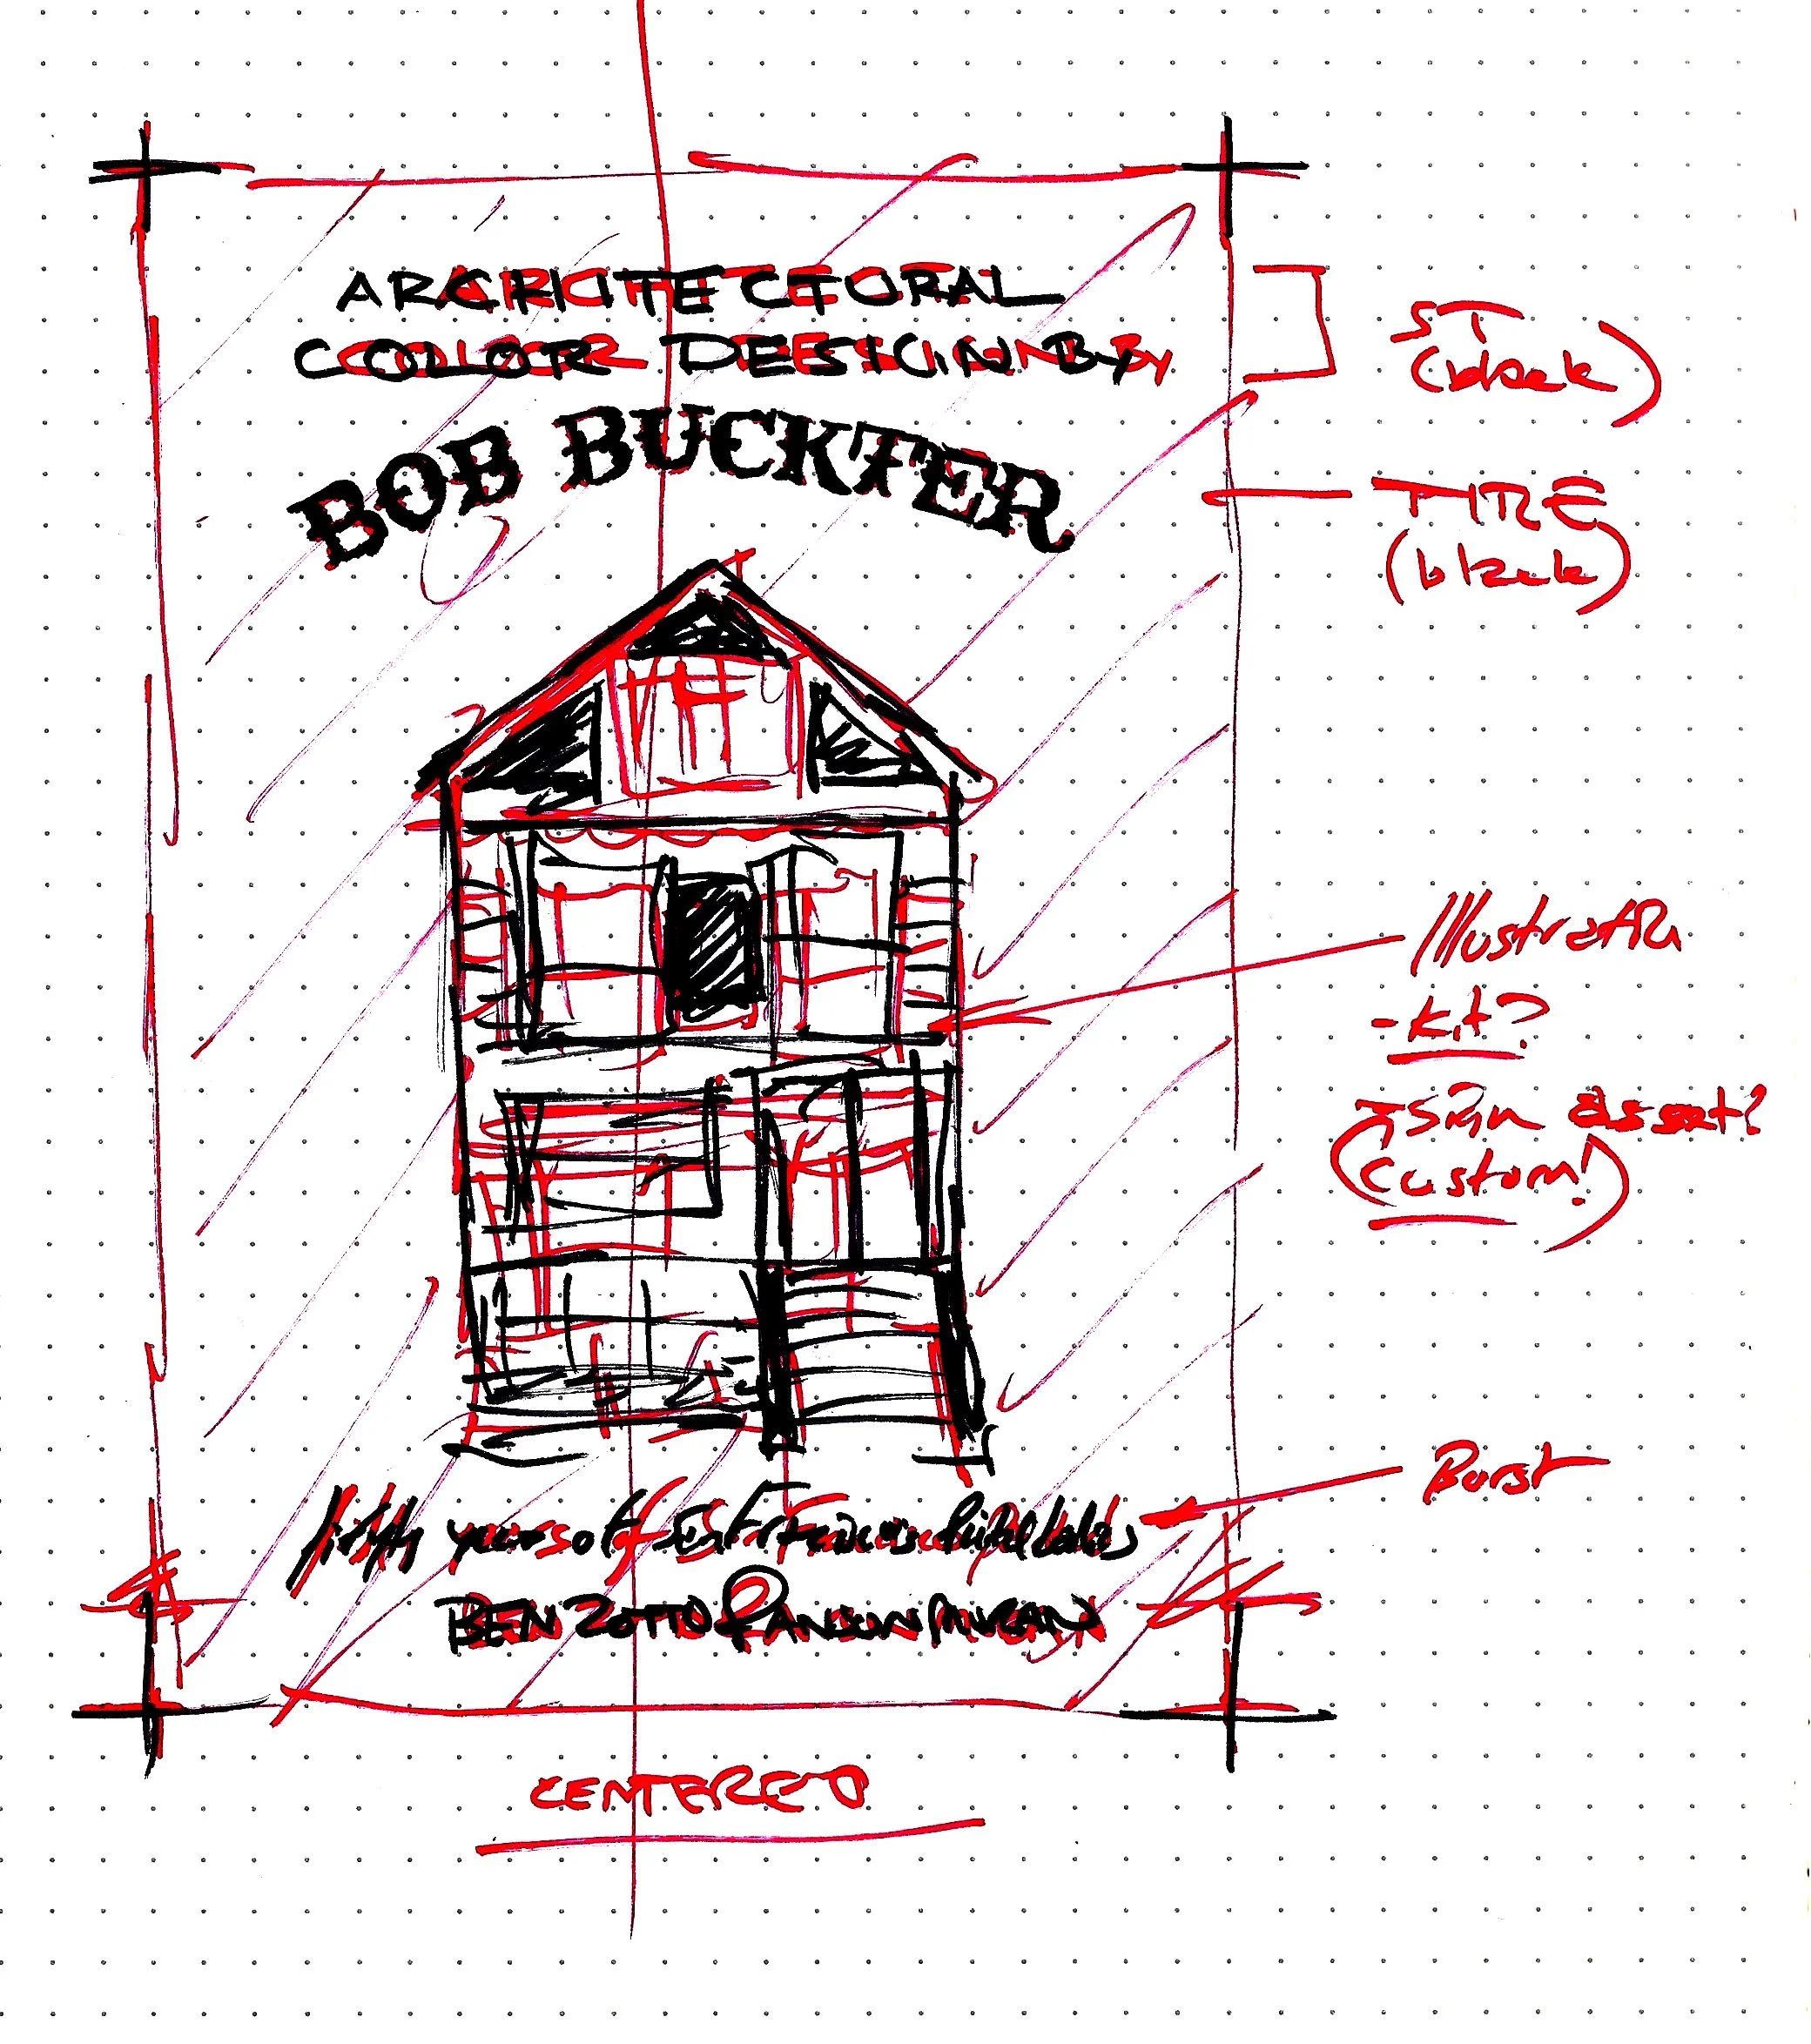 ARCHITECTURAL
COLOR DESIGN BY
BOB BUCKTER
fifty years of San Francisco's Painted Ladies
BEN ZOTTO & ANSON MORAN
ST
(black)
TITLE
(black)
Illustration
- Kit?
asset?
(custom!)
Burst
CENTERED